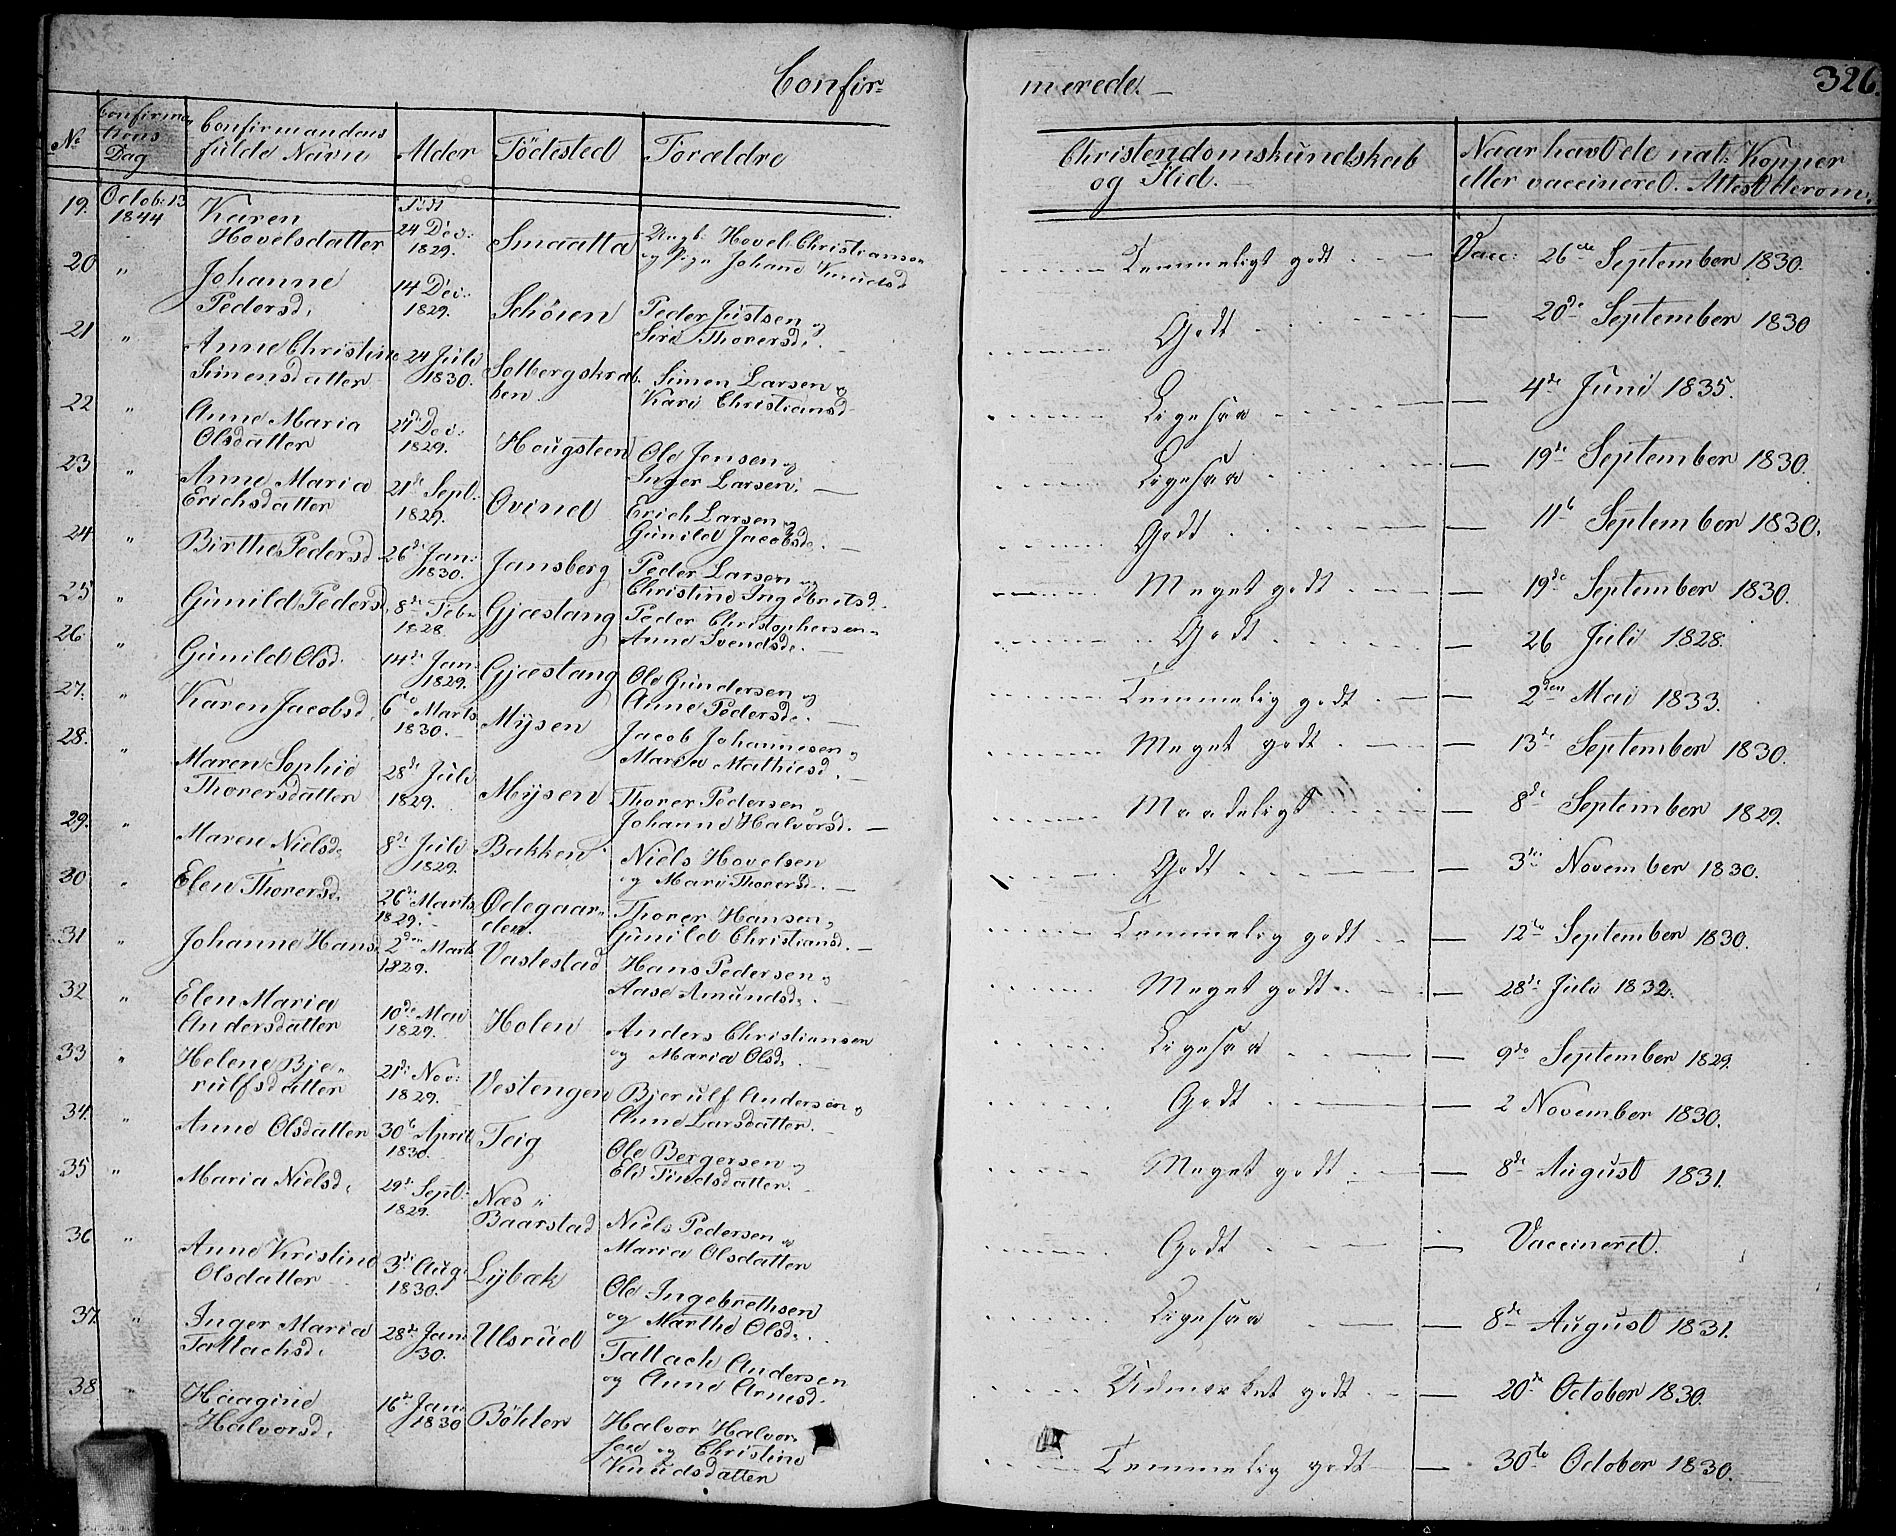 Confir=
merede.
326.
No
Confirma
tions
Dag
Confirmandens
fulde Navn
Alder
Födested
Forældre
Christendomskundskab
og Flid.
Naar havt de nat: Kopper
eller vaccineret. Attest derom.
19. Octob: 13 1844 Karen Hovelsdatter Födt 24 Dec: 1829. Smaatta Ungk: Hovel Christiansen og Pige Johane Knudsd Temmeligt godt Vacc: 26de September 1830.
20 " Johanne Pedersd. 14 Dec: 1829. Schöien Peder Justsen og Siri Thorersd. Godt 20de September 1830
21 " Anne Christine Simensdatter 24 Juli 1830. Solbergskrabben Simen Larsen og Kari Christiansd Ligesaa 4de Juni 1835.
22 " Anne Maria Olsdatter 27de Dec: 1829. Hougsteen Ole Jensen og Inger Larsen. Ligesaa 19de September 1830.
23 " Anne Maria Erichsdatter 21de Sept: 1829. Ovind Erich Larsen og Gunild Jacobsd. Godt 11te September 1830.
24 " Birthe Pedersd 26de Jan: 1830. Jansberg Peder Larsen og Christine Ingebritsd. Meget godt 19de September 1830.
25 " Gunild Pedersd 8de Feb: 1828. Gjæstang Peder Christophersen Anne Svendsd. Godt 26 Juli 1828.
26. " Gunild Olsd. 14de Jan: 1829. Gjæstang Ole Gundersen og Anne Pedersd. Temmelig godt 2den Mai 1833.
27. " Karen Jacobsd. 6te Marts 1830. Mysen Jacob Johannesen og Maria Mathiesd. Meget godt 13de September 1830.
28. " Maren Sophie Thorersdatter 28de Juli 1829. Mysen Thorer Pedersen og Johanne Halvorsd. Maadeligt 8de September 1829.
29. " Maren Nielsd. 8de Juli 1829. Bakken Niels Hovelsen og Mari Thorersd. Godt 3die November 1830.
30 " Elen Thorersd. 26de Marts 1829. Ödegaarden. Thorer Hansen, Gunild Christiansd. Temmelig godt 12te September 1830.
31 " Johanne Hansd 2den Marts 1829. Vastestad Hans Pedersen og Aase Amundsd. Meget godt 28de Juli 1832.
32 " Elen Maria Andersdatter 10de Mai 1829. Holen Anders Christiansen og Maria Olsd. Ligesaa 9de September 1829.
33 " Helene Bjerulfsdatter 21de Nov: 1829. Vestengen Bjerulf Andersen og Anne Larsdatter. Godt 2 November 1830.
34. " Anne Olsdatter 30te April 1830. Teig Ole Bergersen og Eli Findsdatter. Meget godt 8de August 1831.
35 " Maria Nielsd. 29de Sept: 1829. Næs " Baarstad Niels Pedersen og Maria Olsdatter Godt Vaccineret.
36 " Anne Kristine Olsdatter 3de Aug: 1830. Lybæk Ole Ingebrethsen og Marthe Olsd. Ligesaa 8de August 1831.
37. " Inger Maria Tallachsd. 28de Jan: 30. Ulsrud Tallach Andersen og Anne Arnesd. Udmerket godt 20de October 1830.
38 " Haagine Halvorsd. 16de Jan: 1830 Böhler Halvor Halvorsen og Christine Knudsdatter Temmelig godt 30te October 1830.